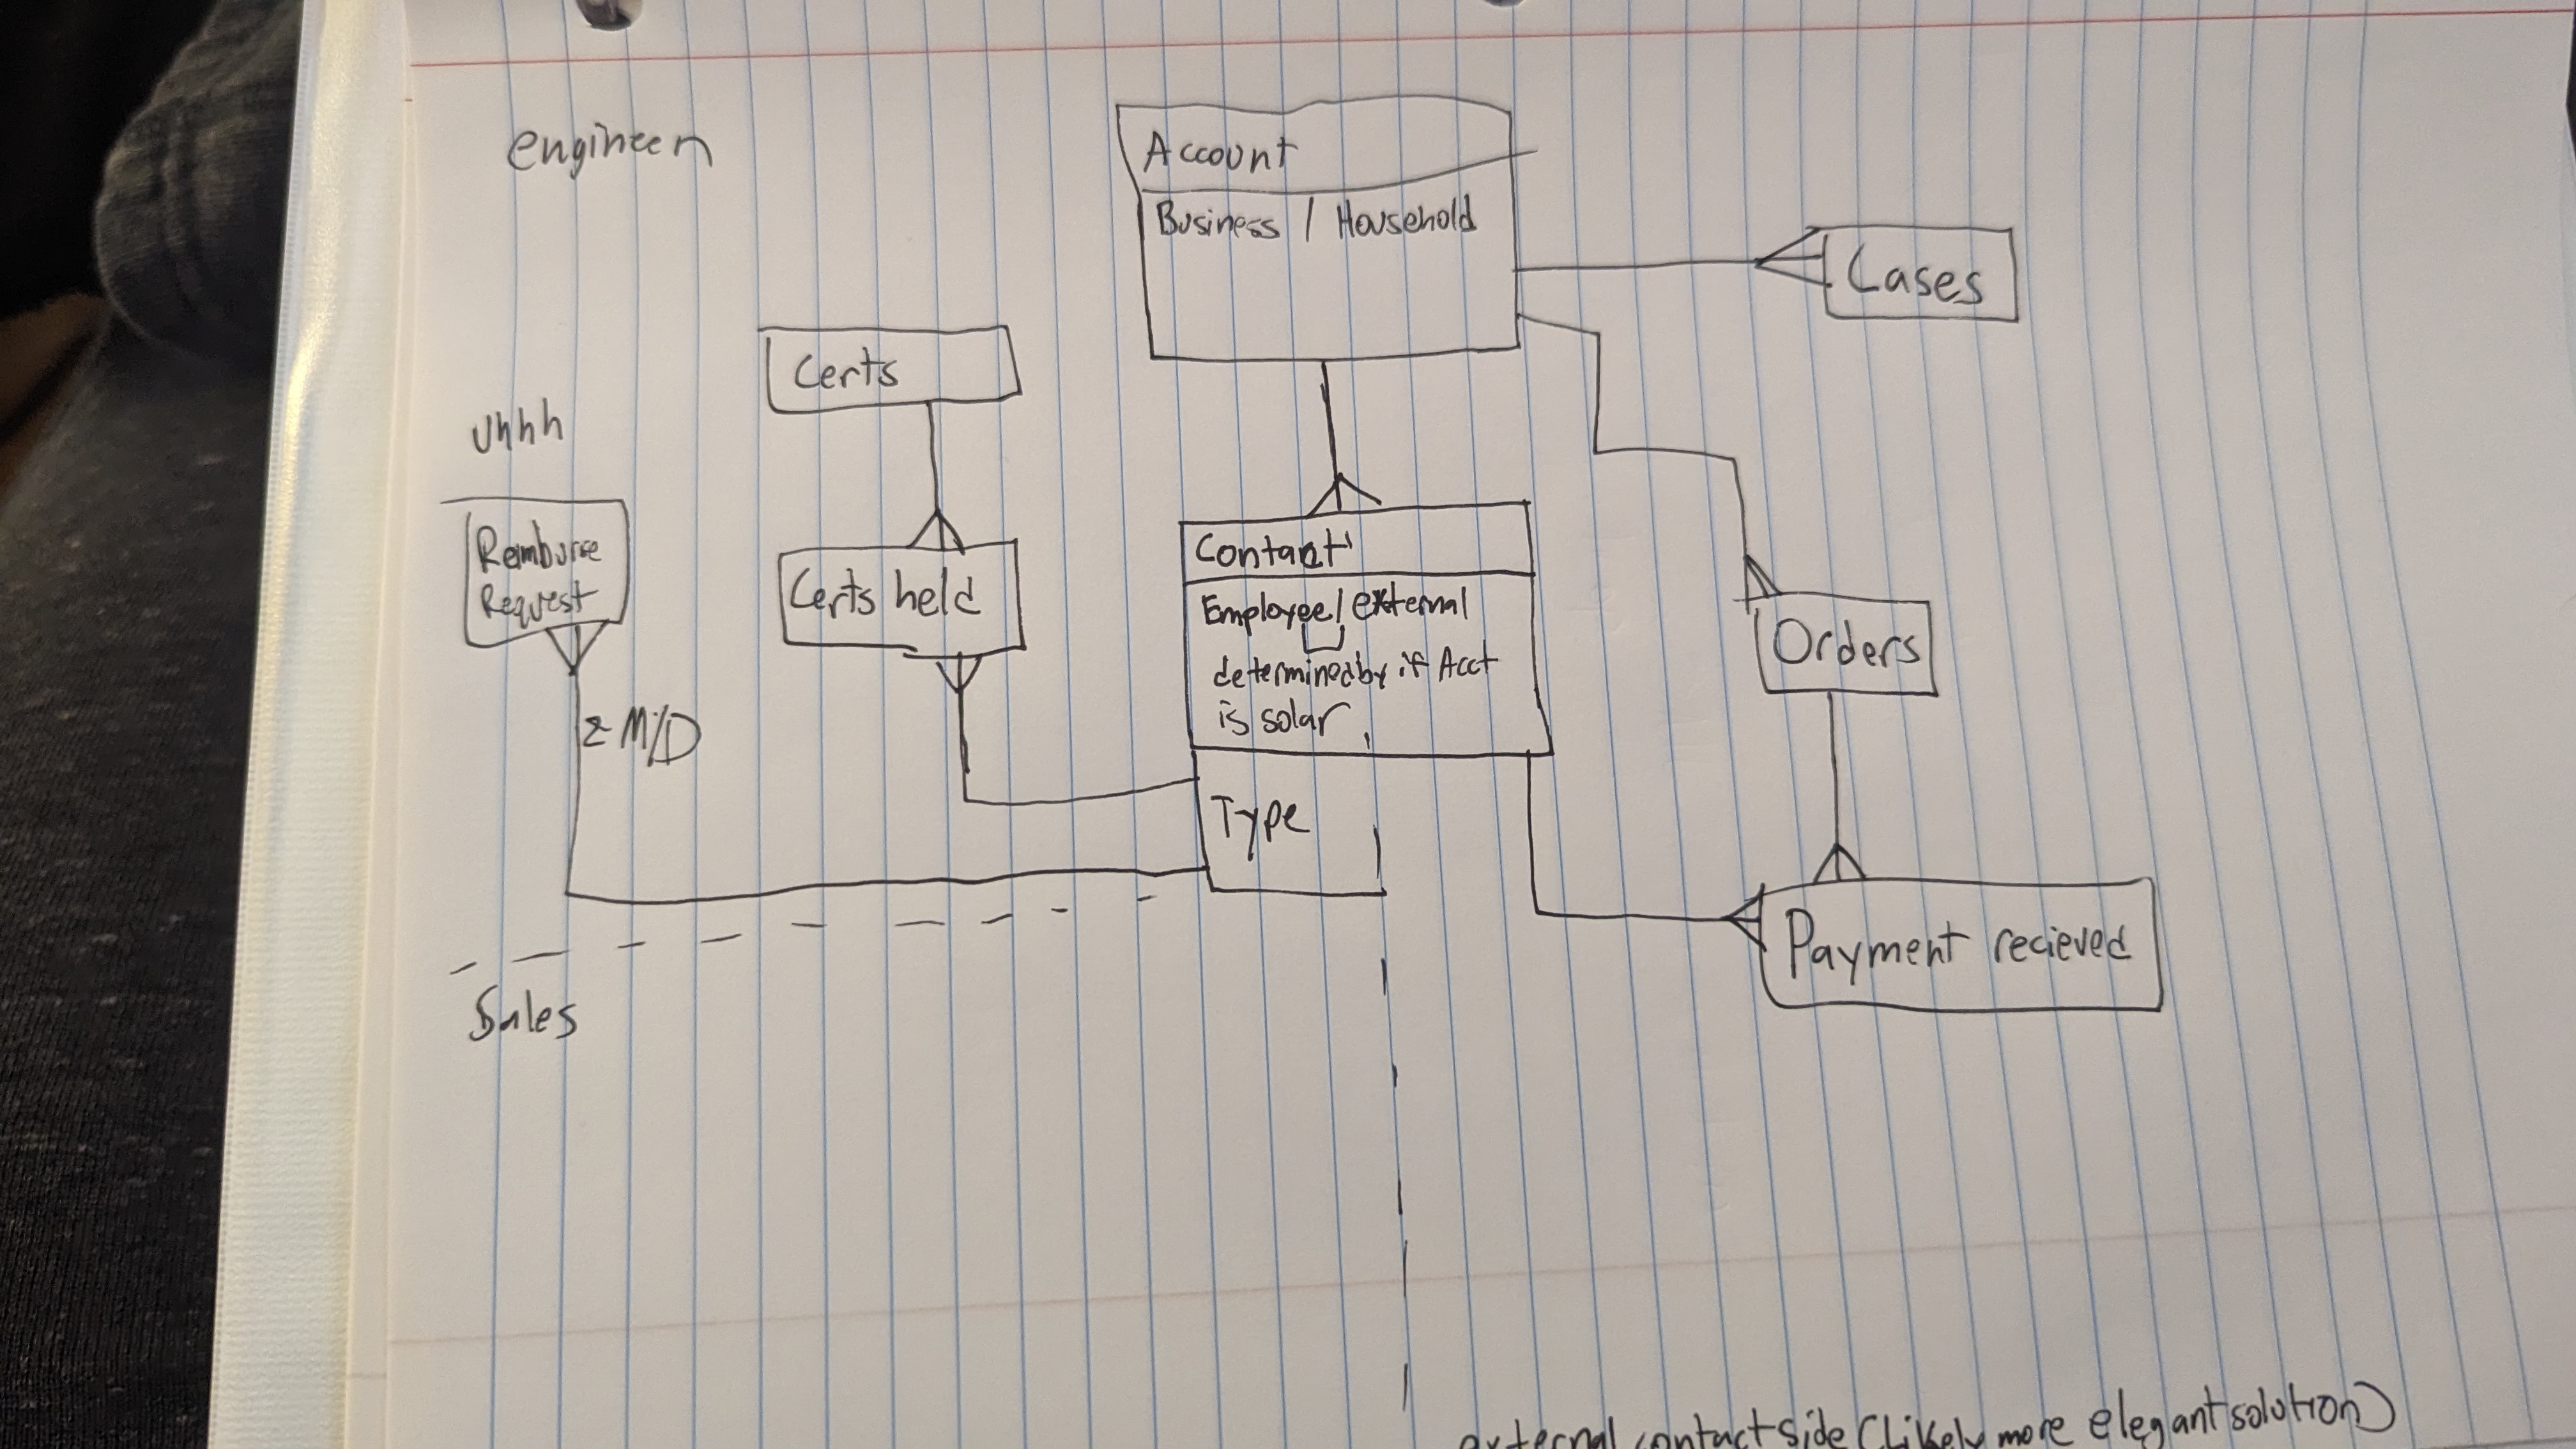 engineer
Account
Business / Household
Cases
Certs
Uhhh
Reimburse
Request
Certs held
Contact
Employee/external
determined by if Acct
is solar
Orders
2 M/D
Type
Payment recieved
Sales
external contact side (Likely more elegant solution)